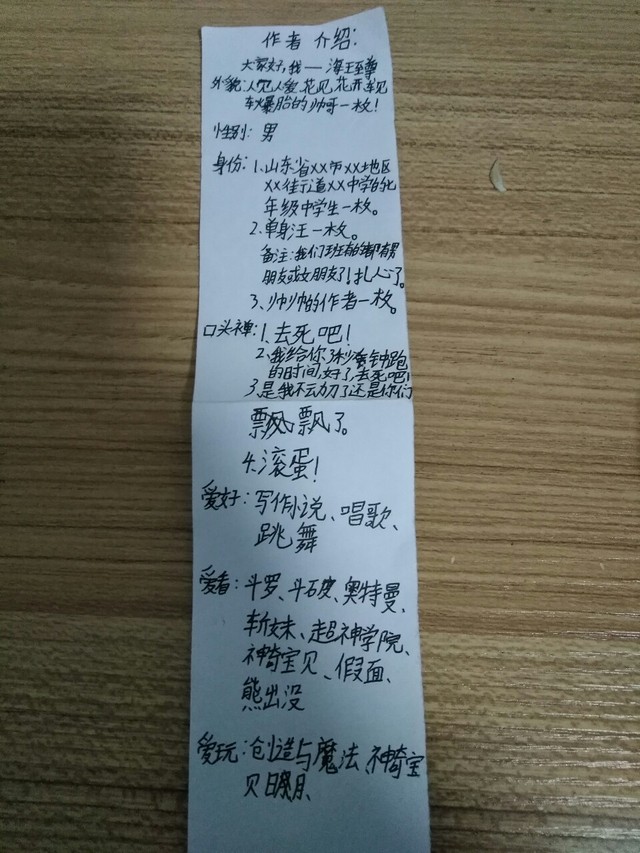 作者 介绍:
大家好,我——海王至尊
外貌:人见人爱、花见花开、车见
车爆胎的帅哥一枚!
性别: 男
身份: 1.山东省XX市XX地区
XX街道XX中学的七
年级中学生一枚。
2.单身汪一枚。
备注:我们班有的都有男
朋友或女朋友了!扎人心了。
3、帅帅的作者一枚。
口头禅:1.去死吧!
2.我给你3秒钟跑
的时间,好了,去死吧!
3.是我不云力刀了还是你们
飘飘了。
4.滚蛋!
爱好:写作小说、唱歌、
跳舞
爱看:斗罗、斗破、奥特曼、
斩妹、超神学院、
神奇宝贝、假面、
熊出没
爱玩:创造与魔法、神奇宝
贝